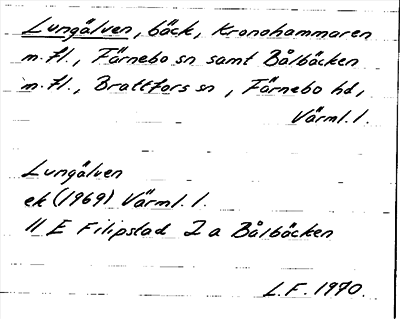 Lungälven, bäck, Kronohammaren
m.fl., Färnebo sn samt Bålbäcken
m.fl., Brattfors sn, Färnebo hd,
Värml. l.
Lungälven
ek (1969) Värml. l.
11 E Filipstad 2 a Bålbäcken
L.F. 1970.